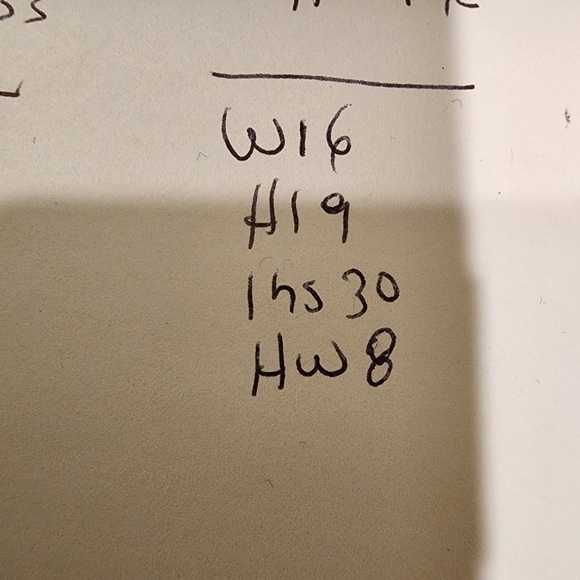 W16
H19
Ihs 30
HW 8